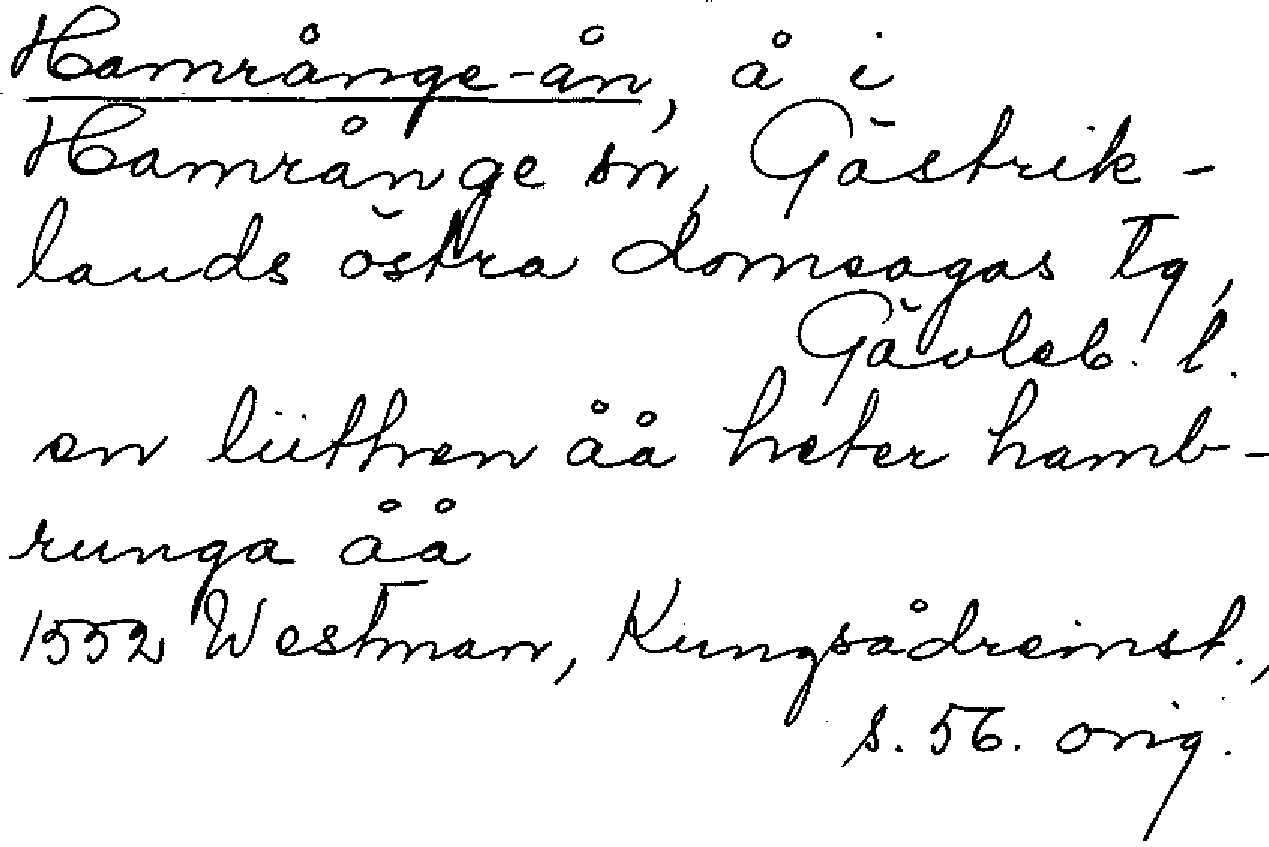 Hamrånge-ån, å i
Hamrånge sn, Gästrik-
lands östra domsagas tg,
Gävleb. l.
en liithen åå heter hamb-
runga åå
1552 Westman, Kungsådreinst.,
s. 56. orig.